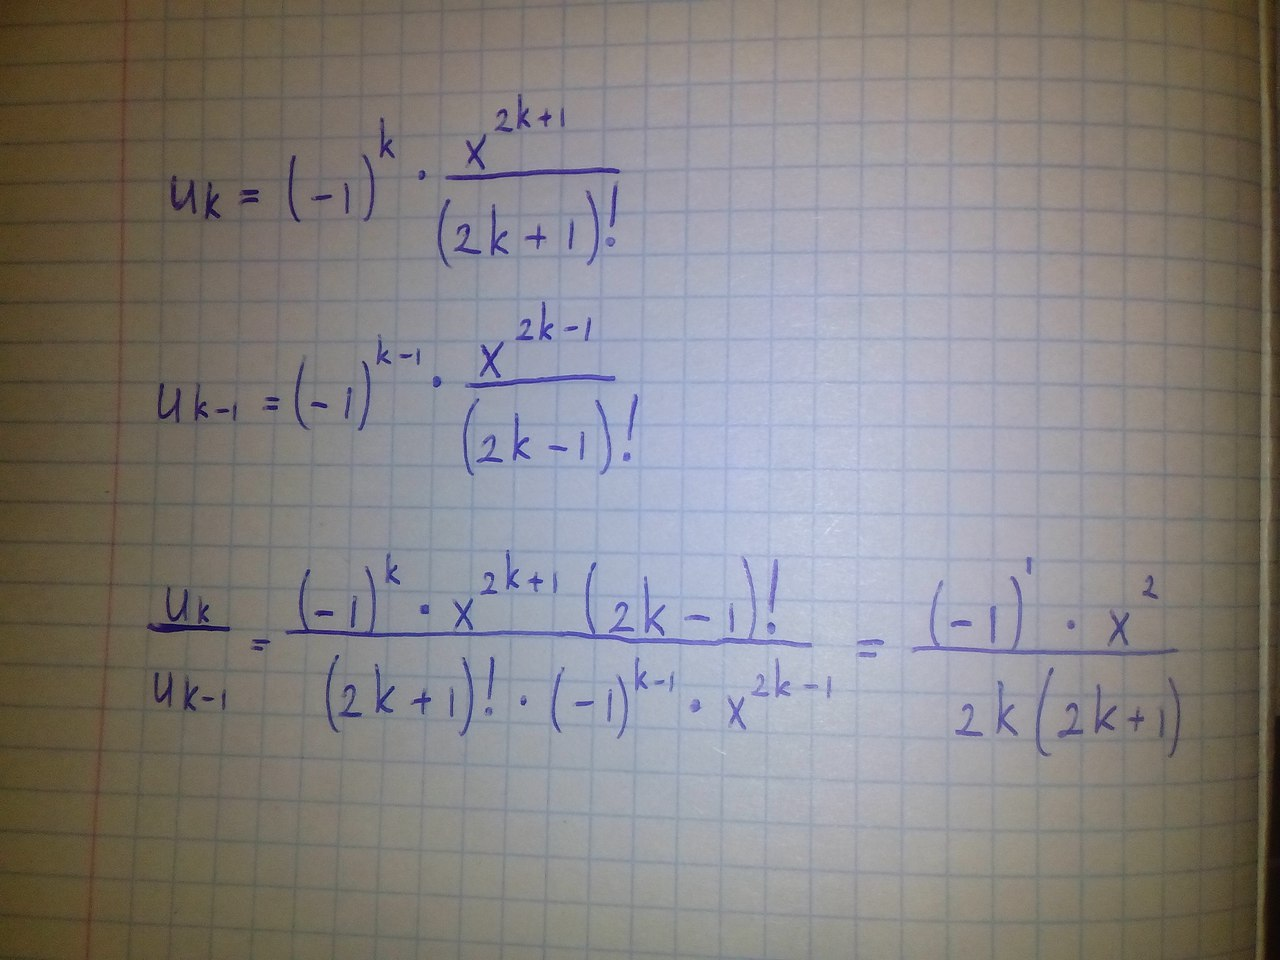 u_k = (-1)^k · x^{2k+1} / (2k+1)!
u_{k-1} = (-1)^{k-1} · x^{2k-1} / (2k-1)!
u_k / u_{k-1} = (-1)^k · x^{2k+1} (2k-1)! / (2k+1)! · (-1)^{k-1} · x^{2k-1} = (-1)^1 · x^2 / 2k(2k+1)